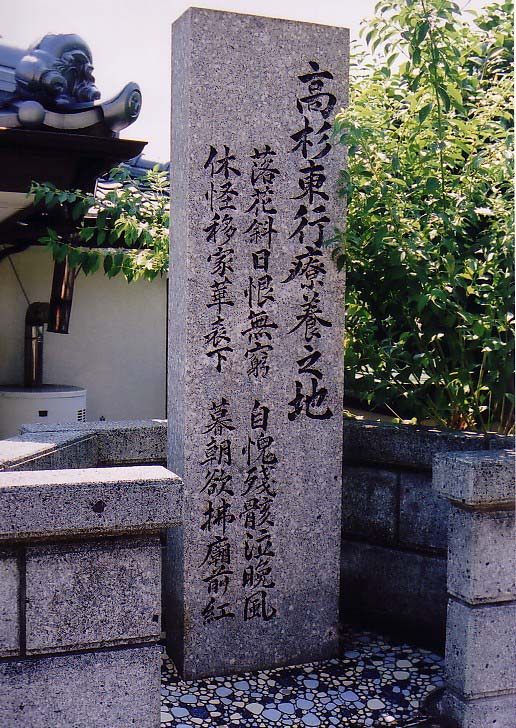 高杉東行療養之地
落花斜日恨無窮 自愧残骸泣晩風
休怪移家華表下 暮朝欲拂廟前紅